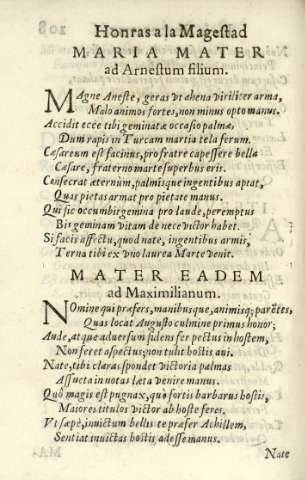 Honras a la Magestad
MARIA MATER
ad Arnestum filium.
MAgne Aneste, geras vt ahena viriliter arma,
Malo animos fortes, non minus opto manus.
Accidit ecce tibi geminatæ occasio palmæ,
Dum rapis in Turcam martia tela ferum.
Cæsareum est facinus, pro fratre capessere bella
Cæsare, fraterno marte superbus eris.
Consecrat æternùm, palmisque ingentibus aptat,
Quas pietas armat pro pietate manus.
Qui sic occumbir gemina pro laude, peremptus
Bis geminam vitam de nece victor habet.
Si facis affectu, quod nate, ingentibus armis,
Terna tibi ex vno laurea Marte venit.
MATER EADEM
ad Maximilianum.
NOmine qui præfers, manibusque, animisq; parẽtes,
Quas locat Augusto culmine primus honor;
Aude, atque aduersum fidens fer pectus in hostem,
Non feret aspectus; non tulit hostis aui.
Nate, tibi clara spondet victoria palmas
Assueta in notas læta venire manus.
Quò magis est pugnax, quo fortis barbarus hostis,
Maiores titulos victor ab hoste feres.
Vt sæpè, inuictum bellis te præfer Achillem,
Sentiat inuictas hostis adesse manus.
Nate